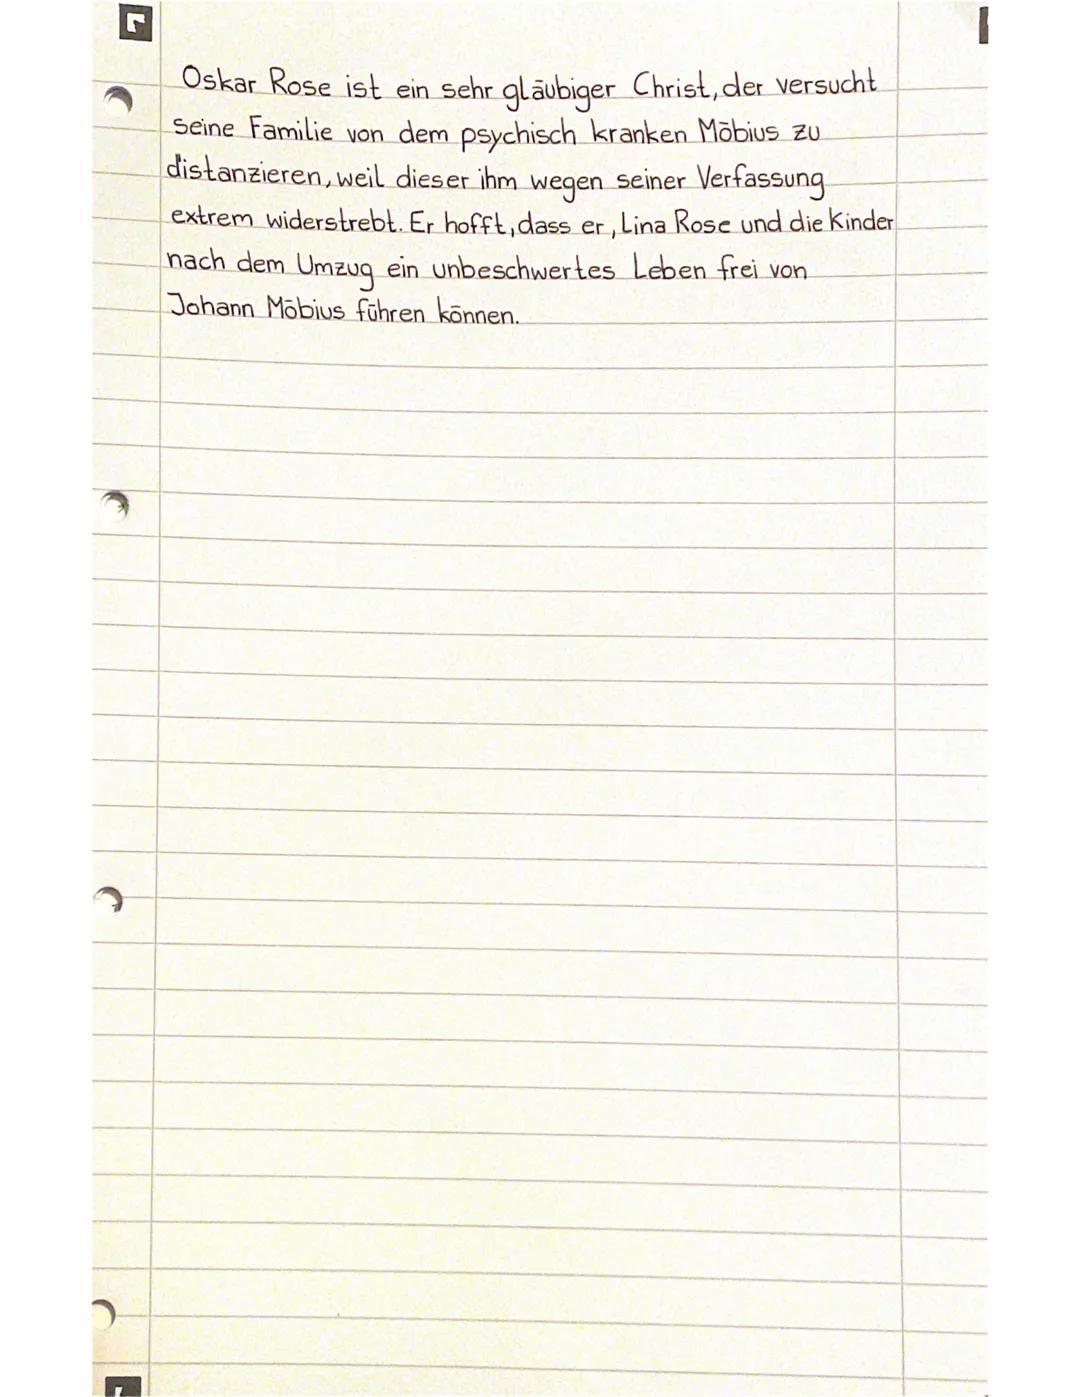 Oskar Rose ist ein sehr gläubiger Christ, der versucht
seine Familie von dem psychisch kranken Möbius zu
distanzieren, weil dieser ihm wegen seiner Verfassung
extrem widerstrebt. Er hofft, dass er, Lina Rose und die Kinder
nach dem Umzug ein unbeschwertes Leben frei von
Johann Möbius führen können.